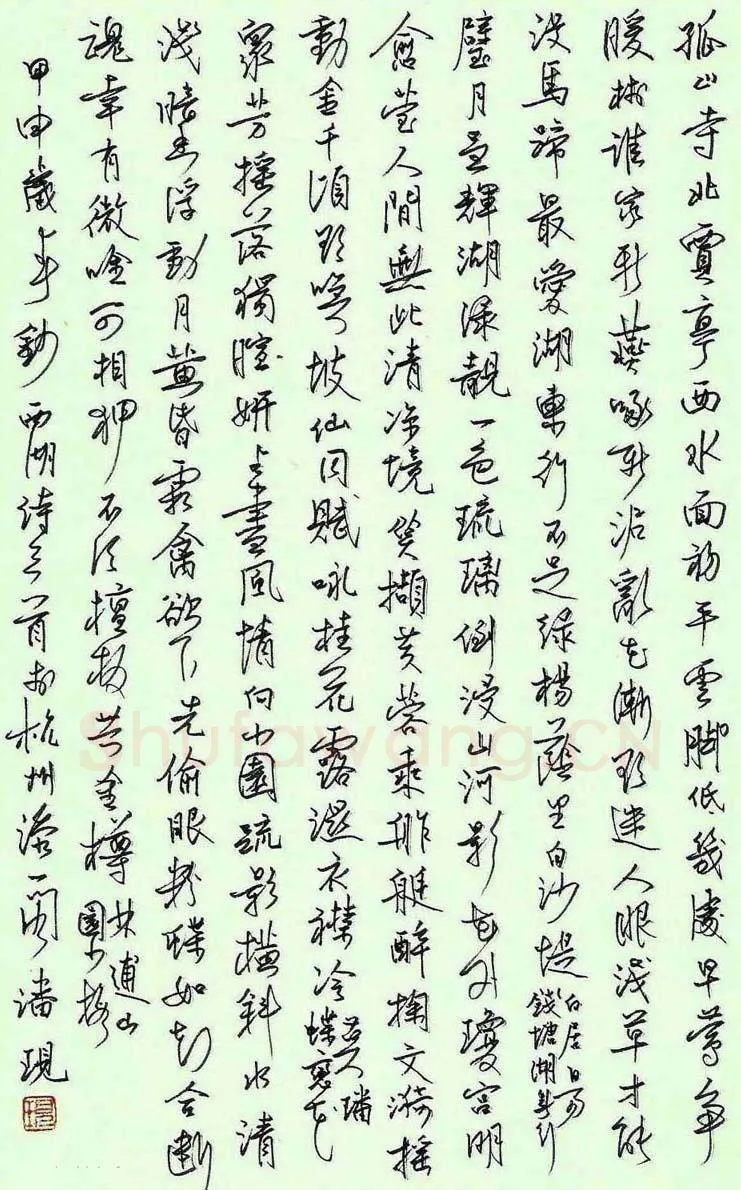 孤山寺北賈亭西水面初平雲腳低幾處早鶯爭
暖樹誰家新燕啄新泥亂花漸欲迷人眼淺草才能
沒馬蹄最愛湖東行不足綠楊蔭里白沙堤
白居易
錢塘湖春行
璧月呈輝湖淥靚一色琉璃倒浸山河影花外瓊宮明
瑩人間無此清涼境笑擷芙蓉乘舴艋醉掬文漪搖
動金千頃欲喚坡仙同賦詠桂花露濕衣襟冷
莫璠
蝶戀花
眾芳搖落獨暄妍占盡風情向小園疏影橫斜水清
淺暗香浮動月黃昏霜禽欲下先偷眼粉蝶如知合斷
魂幸有微吟可相狎不須檀板共金樽
林逋山
園小梅
甲申歲年鈔西湖詩三首於杭州一閣潘現
Shufawang.CN